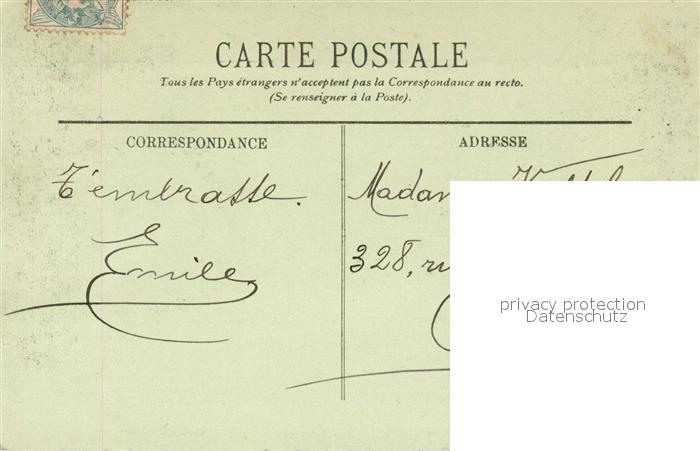 CARTE POSTALE
Tous les Pays étrangers n'acceptent pas la Correspondance au recto.
(Se renseigner à la Poste).
CORRESPONDANCE
T'embrasse.
Emile
ADRESSE
328, ru
privacy protection
Datenschutz